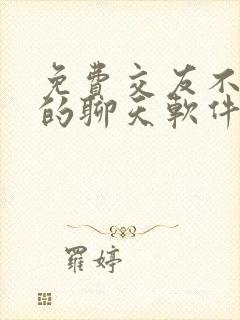 免費交友不
的聊天軟件
羅婷